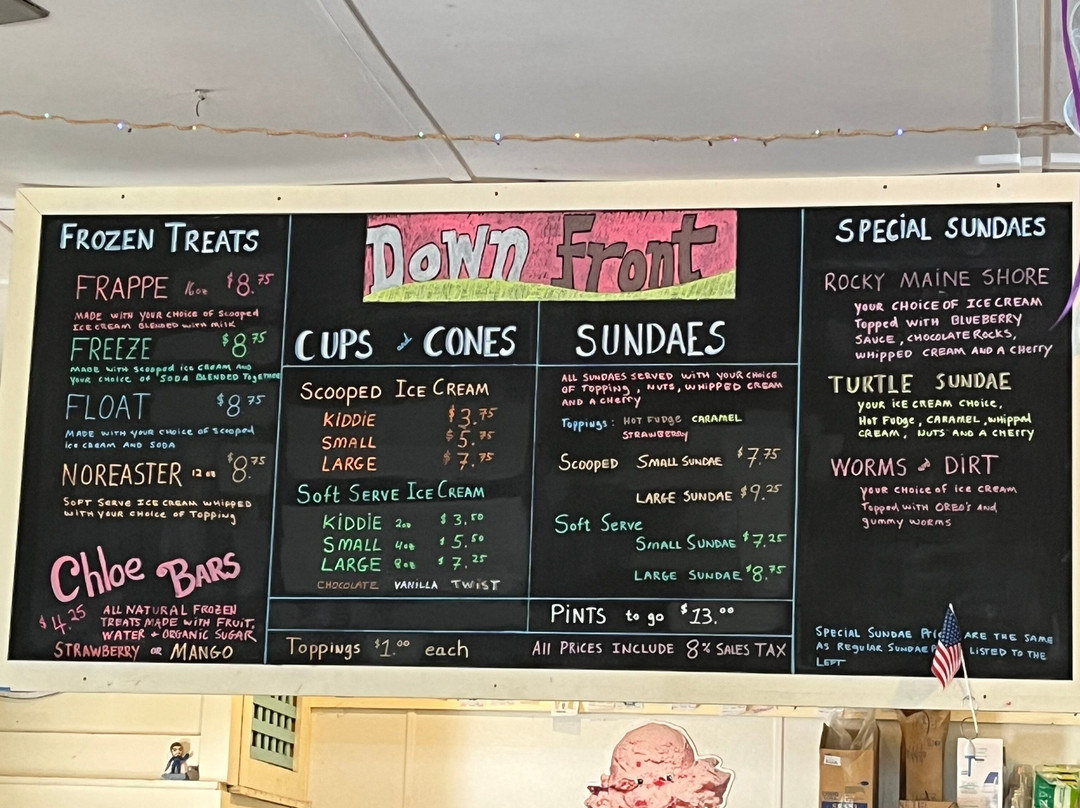 Down Front
FROZEN TREATS
FRAPPE 16oz $8.75
MADE WITH YOUR CHOICE OF Scooped
ICE CREAM BLENDED WITH MILK
FREEZE $8.75
MADE WITH Scooped ICE CREAM AND
YOUR CHOICE OF SODA BLENDED TOGETHER
FLOAT $8.75
MADE WITH YOUR CHOICE OF Scooped
ICE CREAM AND SODA
NOREASTER 12oz $8.75
SOFT SERVE ICE CREAM WHIPPED
WITH YOUR CHOICE OF TOPPING
Chloe BARS
$4.25
ALL NATURAL FROZEN
TREATS MADE WITH FRUIT,
WATER + ORGANIC SUGAR
STRAWBERRY OR MANGO
CUPS and CONES
SCOOPED ICE CREAM
KIDDIE $3.75
SMALL $5.75
LARGE $7.75
Soft SERVE ICE CREAM
KIDDIE 2oz $3.50
SMALL 4oz $5.50
LARGE 8oz $7.25
CHOCOLATE VANILLA TWIST
Toppings $1.00 each
SUNDAES
ALL SUNDAES SERVED WITH YOUR CHOICE
OF TOPPING, NUTS, WHIPPED CREAM
AND A CHERRY
Toppings: HOT FUDGE CARAMEL
STRAWBERRY
SCOOPED SMALL SUNDAE $7.75
LARGE SUNDAE $9.25
Soft Serve
SMALL SUNDAE $7.25
LARGE SUNDAE $8.75
PINTS to go $13.00
ALL PRICES INCLUDE 8% SALES TAX
SPECIAL SUNDAES
ROCKY MAINE SHORE
YOUR CHOICE OF ICE CREAM
Topped WITH BLUEBERRY
SAUCE, CHOCOLATE ROCKS,
WHIPPED CREAM AND A CHERRY
TURTLE SUNDAE
YOUR ICE CREAM CHOICE,
HOT FUDGE, CARAMEL, WHIPPED
CREAM, NUTS AND A CHERRY
WORMS & DIRT
YOUR CHOICE OF ICE CREAM
Topped WITH OREO'S AND
gummy WORMS
SPECIAL SUNDAE ARE THE SAME
AS REGULAR SUNDAE LISTED TO THE
LEFT